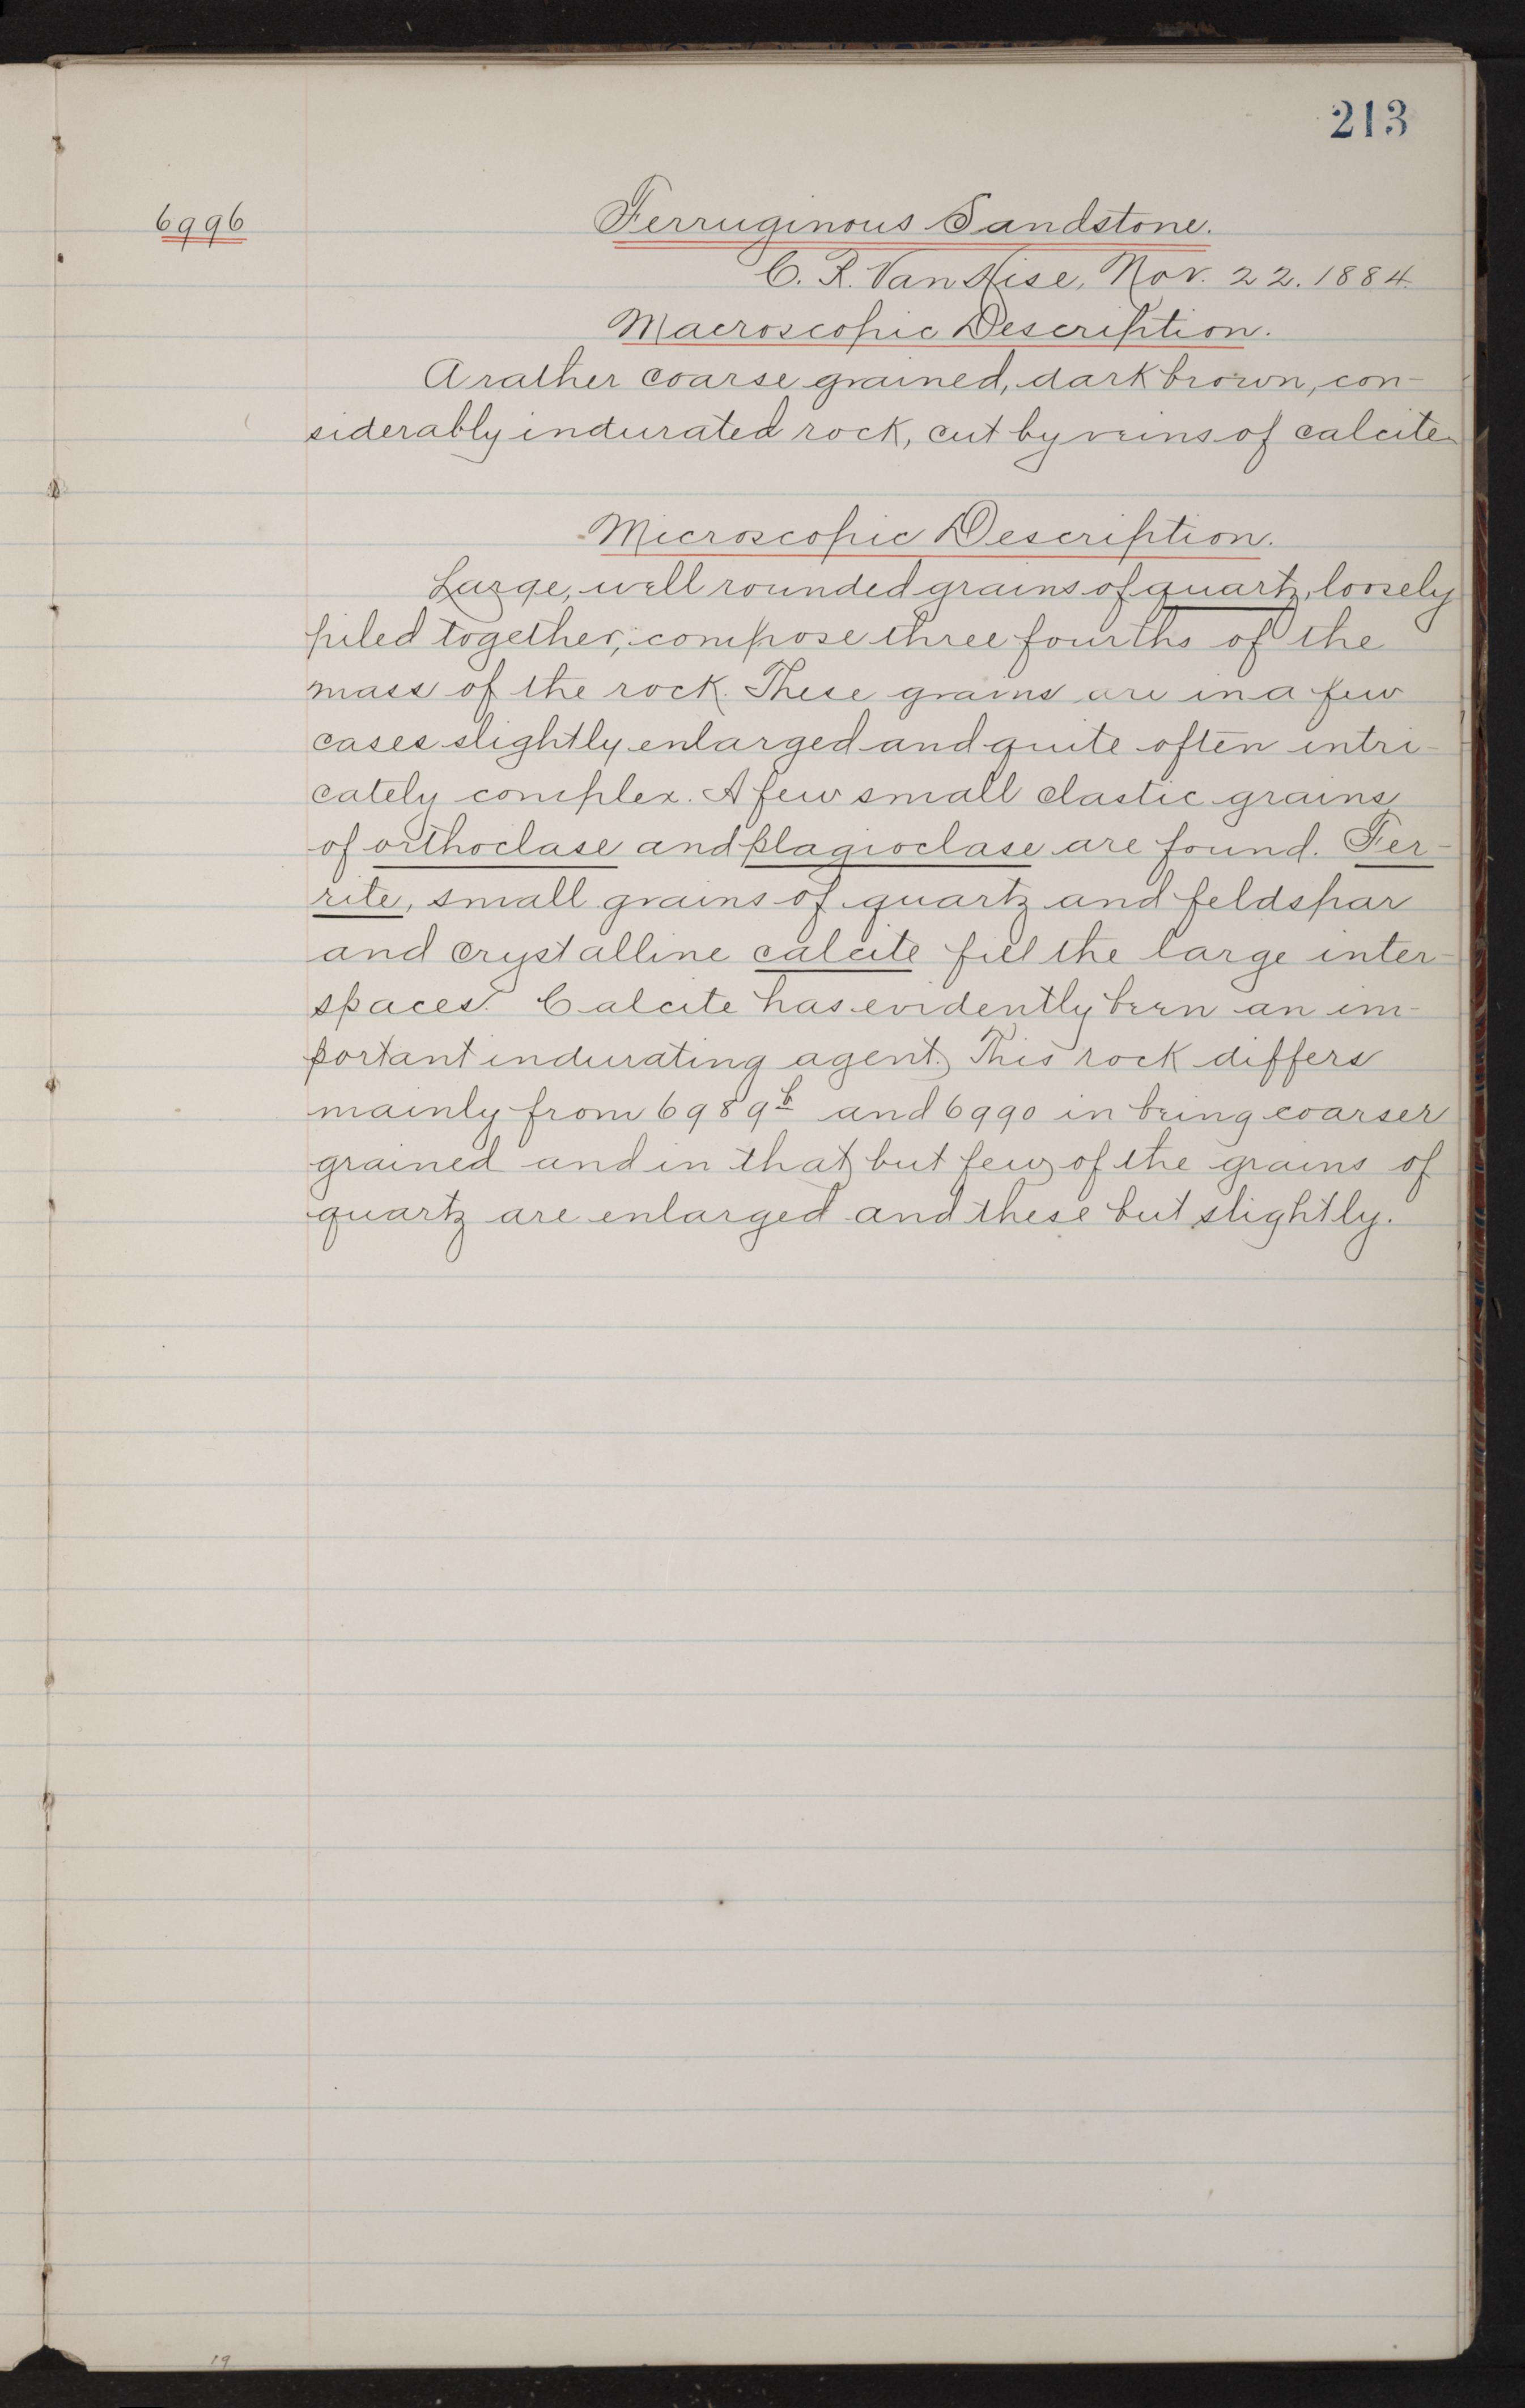 213
6996
Ferruginous Sandstone.
C. R. Van Hise, Nov. 22. 1884.
Macroscopic Description.
A rather coarse grained, dark brown, con-
siderably indurated rock, cut by veins of calcite.
Microscopic Description.
Large, well rounded grains of quartz, loosely
piled together, compose three fourths of the
mass of the rock. These grains are in a few
cases slightly enlarged and quite often intri-
cately complex. A few small clastic grains
of orthoclase and plagioclase are found. Fer-
rite, small grains of quartz and feldspar
and crystalline calcite fill the large inter-
spaces. Calcite has evidently been an im-
portant indurating agent. This rock differs
mainly from 6989b and 6990 in being coarser
grained and in that but few of the grains of
quartz are enlarged and these but slightly.
19